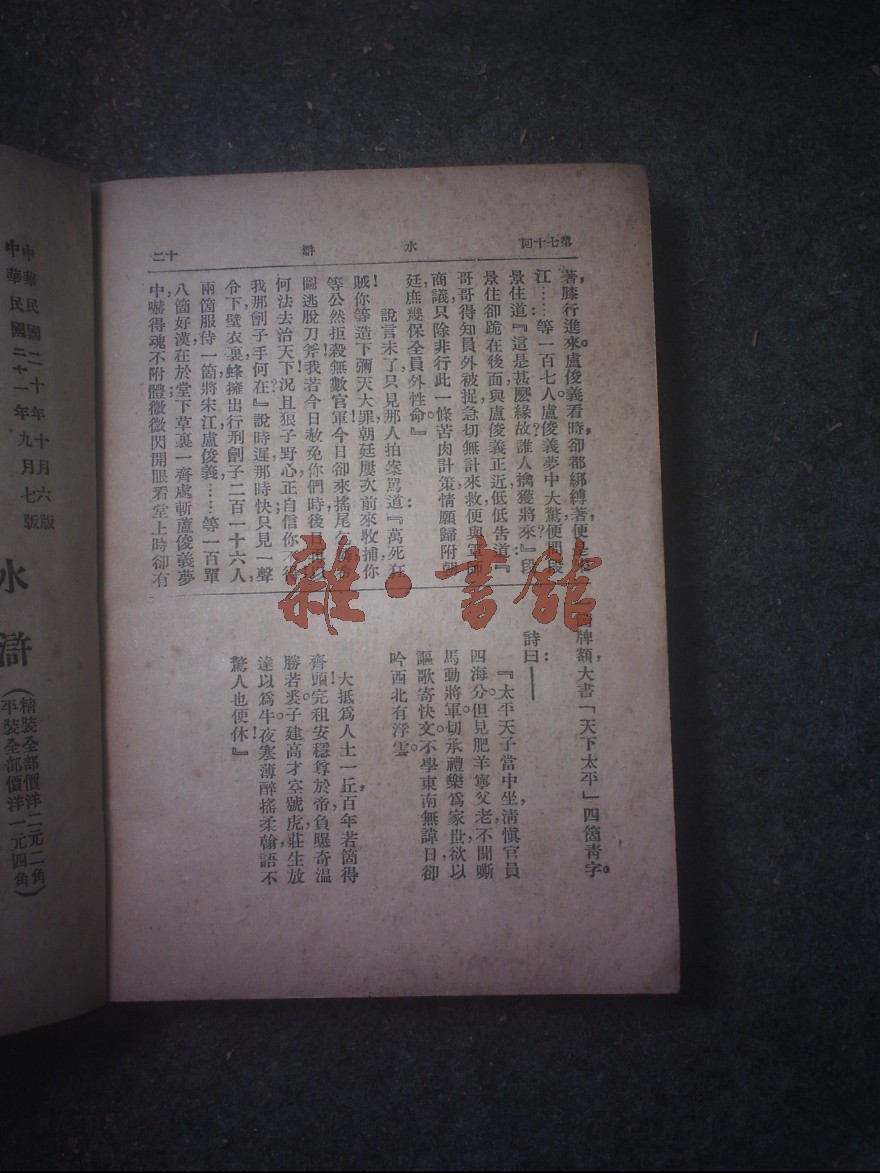 第七十回 水滸 十二
著膝行進來。盧俊義看時，卻都綁縛著，便是宋
江……等一百七人。盧俊義夢中大驚，便問段
景住道：『這是甚麽緣故？誰人擒獲將來？』段
景住卻跪在後面，與盧俊義正近，低低告道：『
哥哥得知員外被捉，急切無計來救，便與軍師
商議，只除非行此一條苦肉計策，情願歸附朝
廷，庶幾保全員外性命。』
說言未了，只見那人拍案罵道：『萬死狂
賊！你等造下彌天大罪，朝廷屢次前來收捕，你
等公然拒殺無數官軍！今日卻來搖尾乞憐，希
圖逃脫刀斧！我若今日赦免你們時，後日再以
何法去治天下？況且狼子野心，正自信你不得！
我那劊子手何在？』說時遲，那時快，只見一聲
令下，壁衣裏蜂擁出行刑劊子二百一十六人，
兩箇服侍一箇，將宋江盧俊義……等一百單
八箇好漢在於堂下草裏一齊處斬。盧俊義夢
中嚇得魂不附體；微微閃開眼看堂上時，卻有
牌額，大書「天下太平」四箇青字。
詩曰：——
『太平天子當中坐，清愼官員
四海分。但見肥羊寧父老，不聞嘶
馬動將軍。切承禮樂爲家世，欲以
謳歌寄快文。不學東南無諱日，卻
吟西北有浮雲。
大抵爲人土一丘，百年若箇得
齊頭！完租安穩尊於帝，負曝奇溫
勝若裘。子建高才空號虎，莊生放
達以爲牛。夜寒薄醉搖柔翰，語不
驚人也便休！』
中華民國二十年十月六版
中華民國二十一年九月七版
水滸
（精裝全部價洋二元二角
平裝全部價洋一元四角）
雜·書館